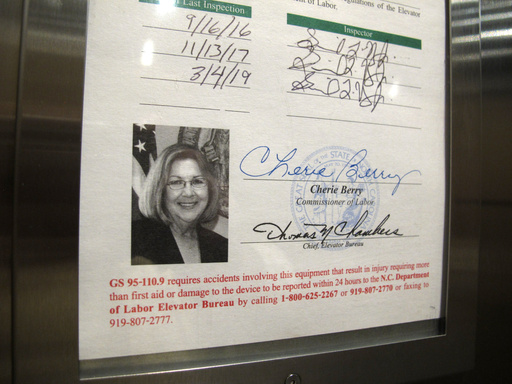 Last Inspection
gulations of the Elevator
nt of Labor.
Inspector
9/16/16
11/13/17
3/4/19
Cherie Berry
Cherie Berry
Commissioner of Labor
Thomas N Chambers
Chief, Elevator Bureau
GS 95-110.9 requires accidents involving this equipment that result in injury requiring more
than first aid or damage to the device to be reported within 24 hours to the N.C. Department
of Labor Elevator Bureau by calling 1-800-625-2267 or 919-807-2770 or faxing to
919-807-2777.